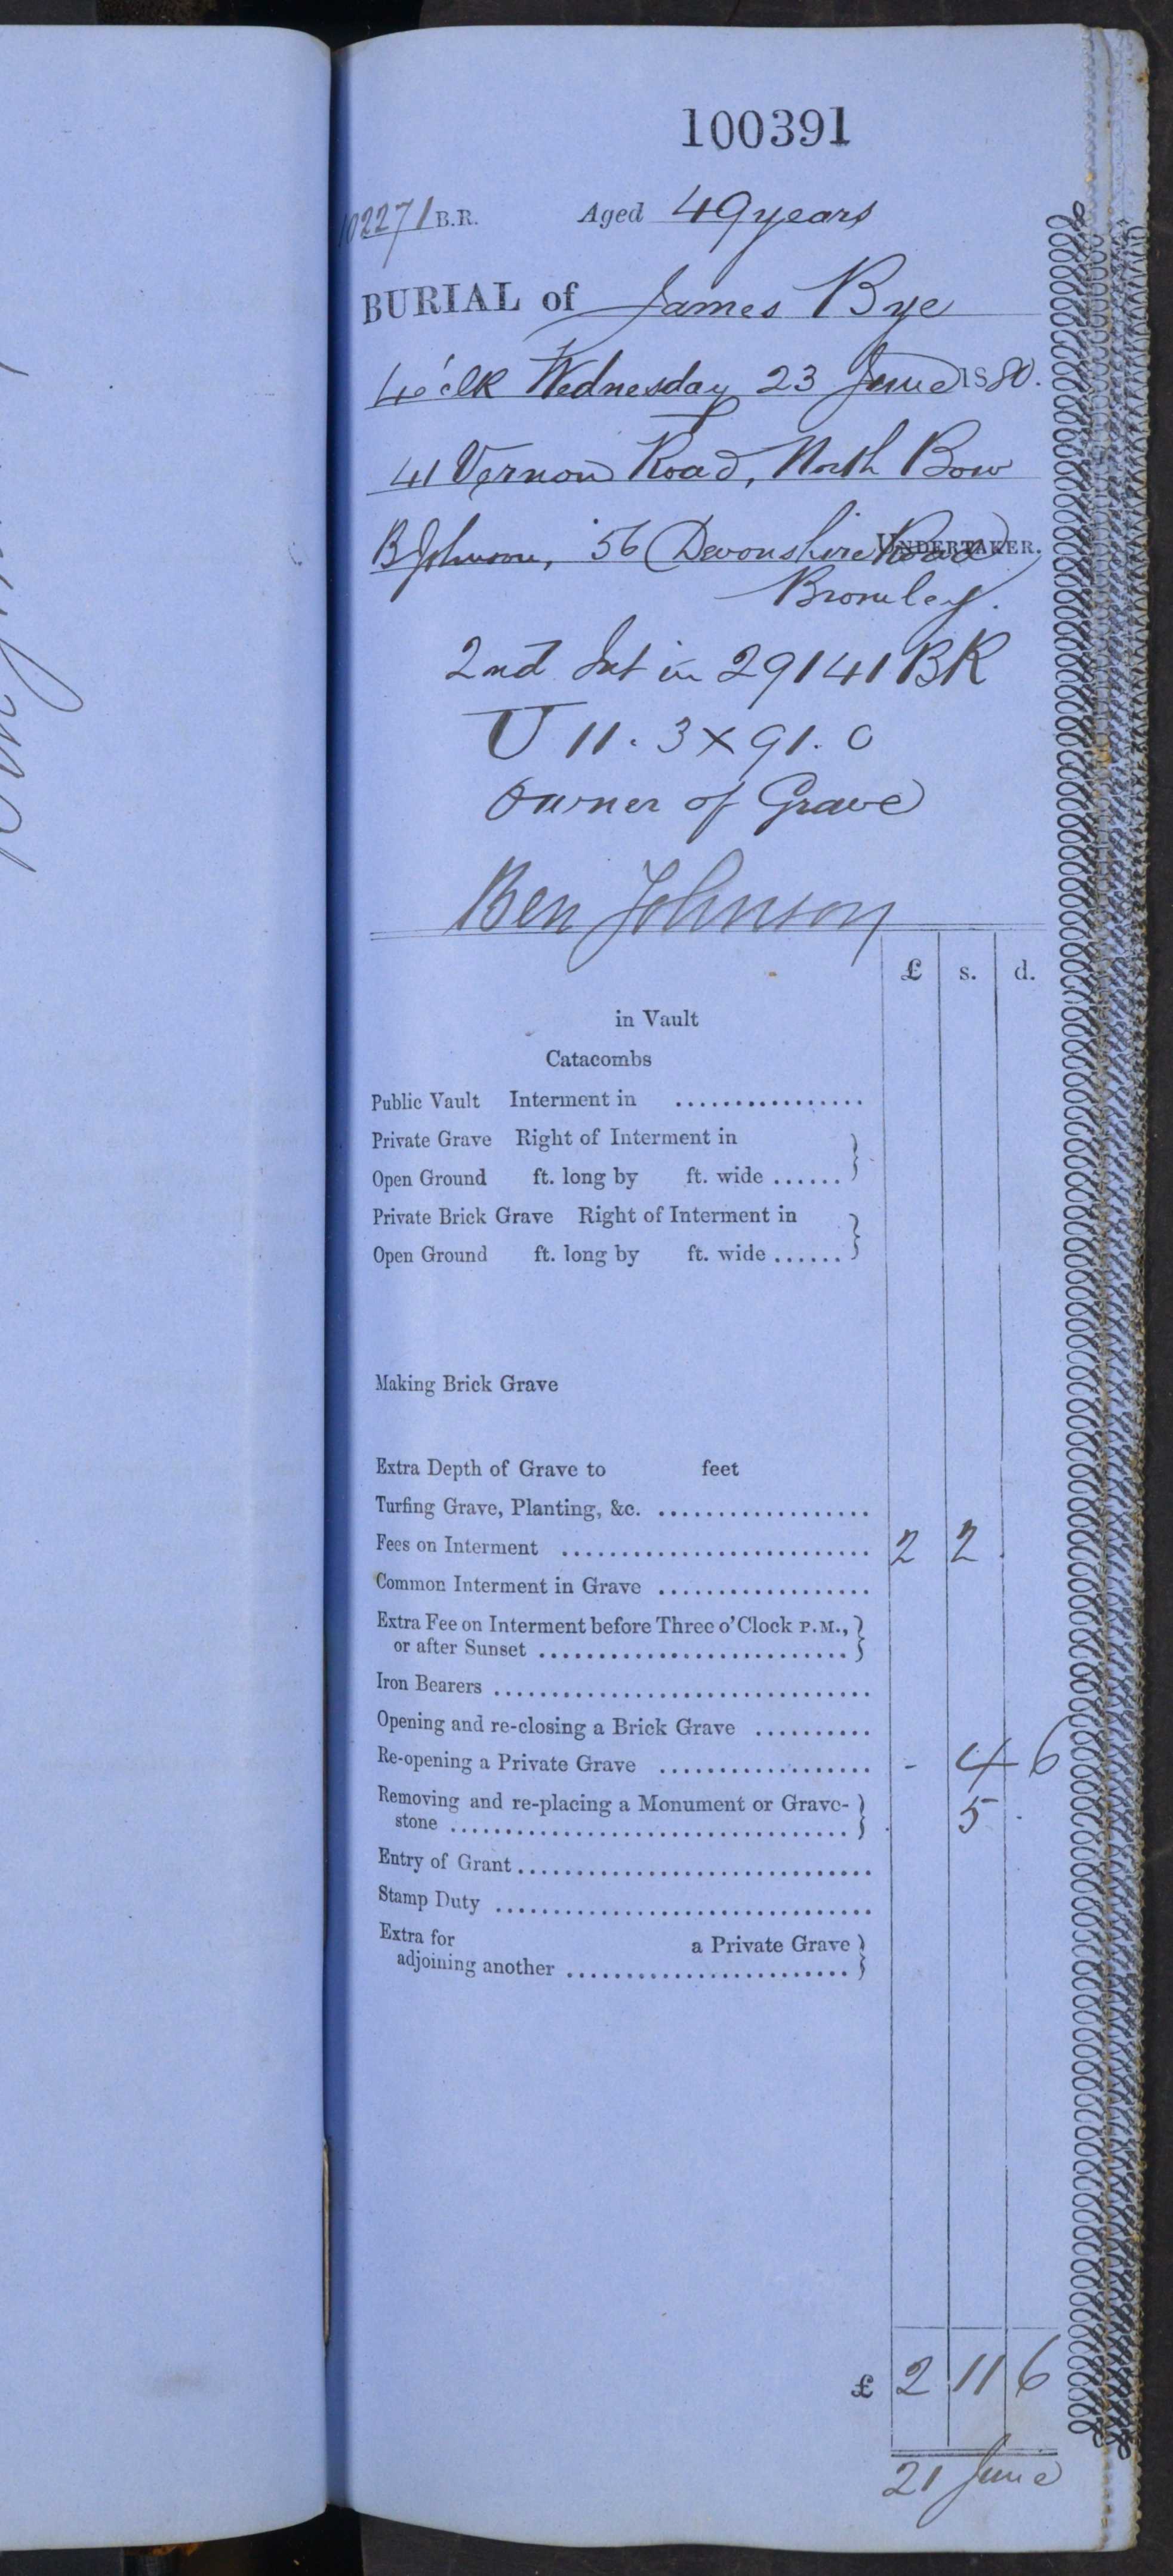 100391
102271 B.R. Aged 49 years
BURIAL of James Bye
4 o'clk Wednesday 23 June 1880.
41 Vernon Road, North Bow
B Johnson, 56 Devonshire Road UNDERTAKER.
Bromley.
2nd Int in 29141 BR
U 11. 3 X 91. 0
Owner of Grave
Ben Johnson
£ s. d.
in Vault
Catacombs
Public Vault Interment in ................
Private Grave Right of Interment in
Open Ground ft. long by ft. wide ...... }
Private Brick Grave Right of Interment in
Open Ground ft. long by ft. wide ...... }
Making Brick Grave
Extra Depth of Grave to feet
Turfing Grave, Planting, &c. ..................
Fees on Interment .......................... 2 2 .
Common Interment in Grave ..................
Extra Fee on Interment before Three o'Clock P.M., }
or after Sunset ..........................
Iron Bearers ................................
Opening and re-closing a Brick Grave ..........
Re-opening a Private Grave .................. - 4 6
Removing and re-placing a Monument or Grave- }
stone .................................. 5 .
Entry of Grant..............................
Stamp Duty ................................
Extra for a Private Grave }
adjoining another ........................
£ 2 11 6
21 June